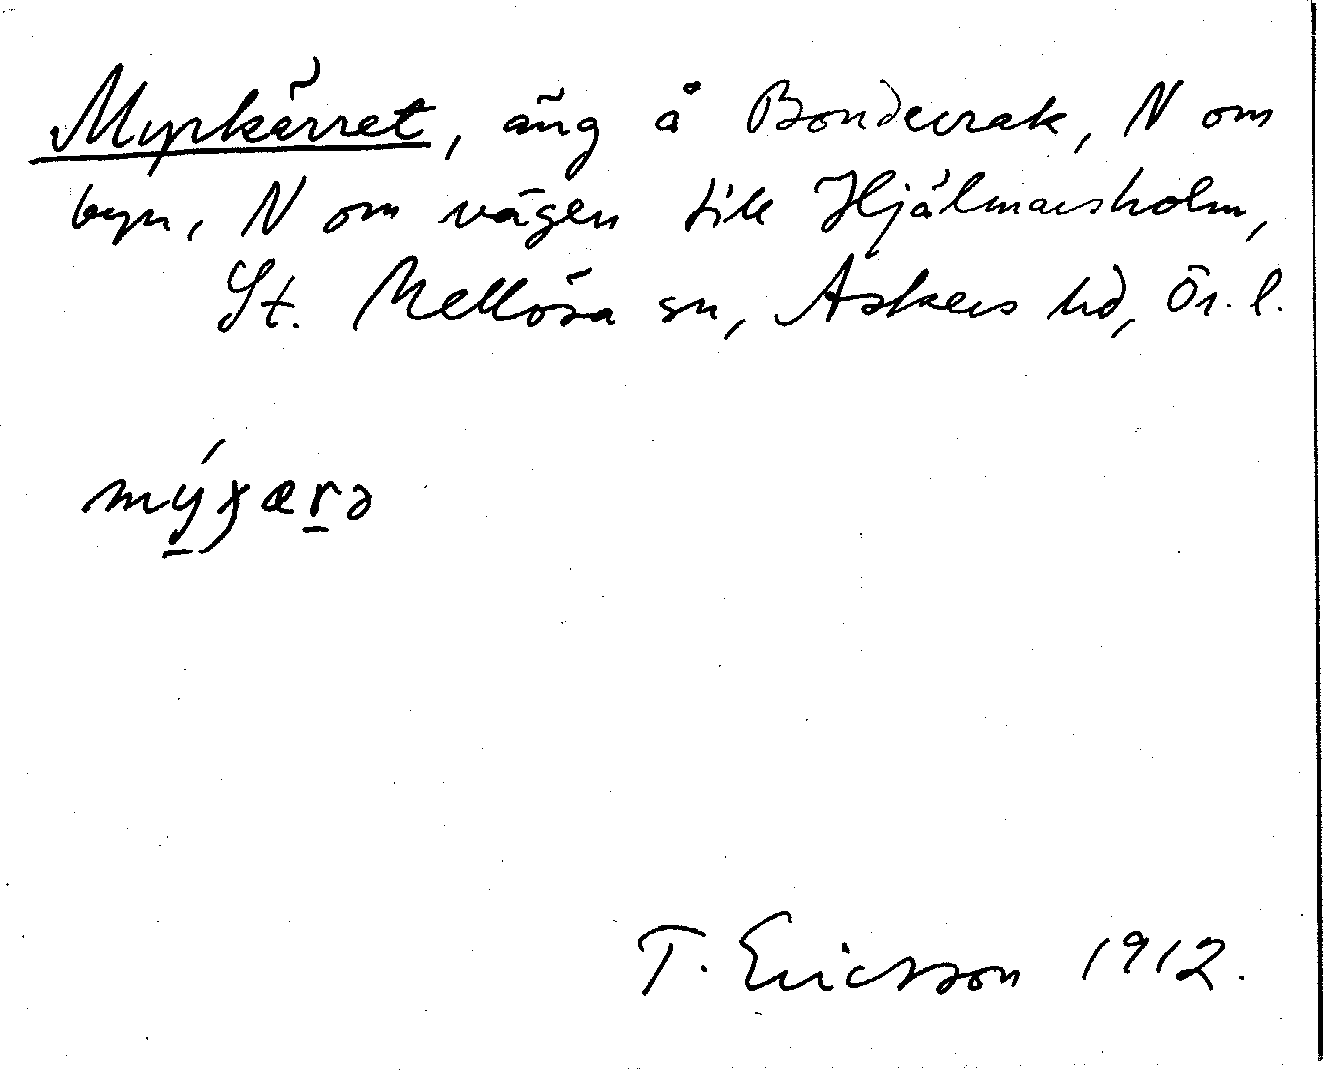 Myrkärret, äng å Bondecrak, N om
byn, N om vägen till Hjälmarsholm,
St. Mellösa sn, Askers hd, Ör. l.
T. Ericsson 1912.